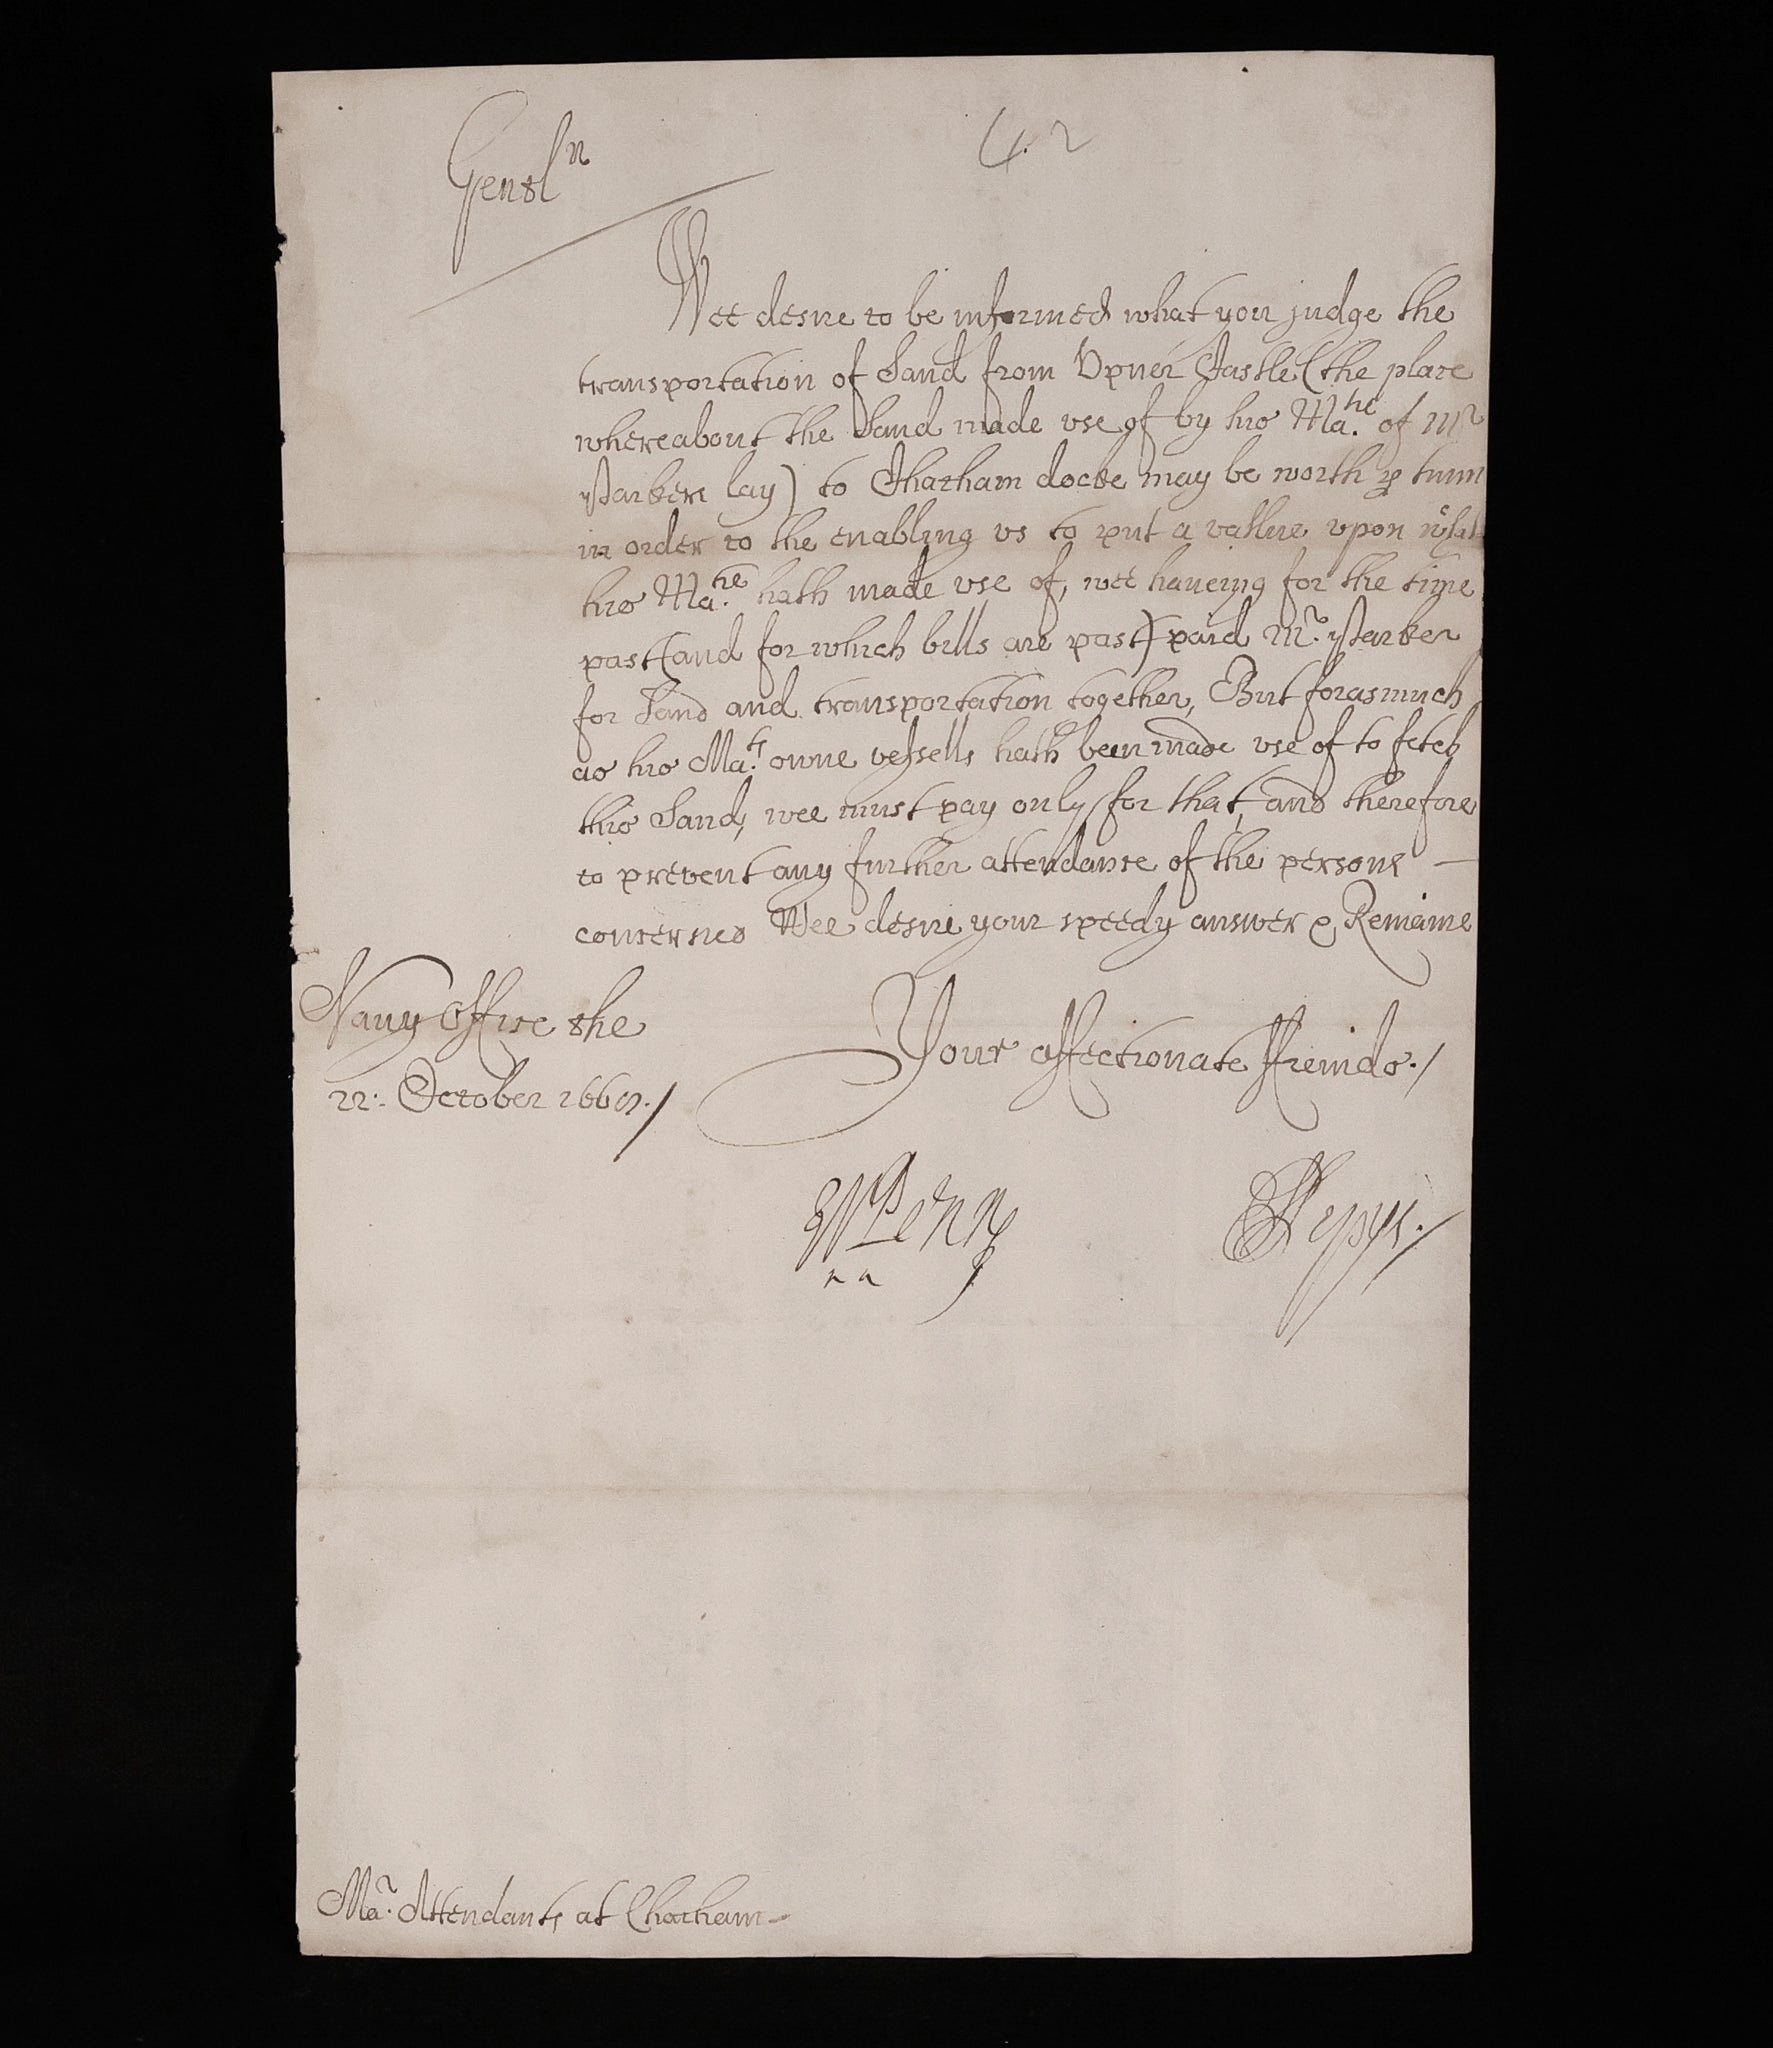 Gentln
42
Wee desire to be informed what you judge the
transportation of Sand from Upner Castle (the place
whereabout the Sand made use of by his Matie of Mr
Barker lay) to Chatham docke may be worth p tunn
in order to the enabling us to put a vallue upon what
his Matie hath made use of, wee haveing for the time
past (and for which bills are past) paid Mr. Barker
for Sand and transportation together, But forasmuch
as his Mats owne vessells hath been made use of to fetch
this Sand, wee must pay only for that, and therefore
to prevent any further attendance of the persons
concerned Wee desire your speedy answer & Remaine
Navy Office the
22: October
Your affectionate ffreinds./
WPenn
SPepys./
Mar. Attendants at Chatham-